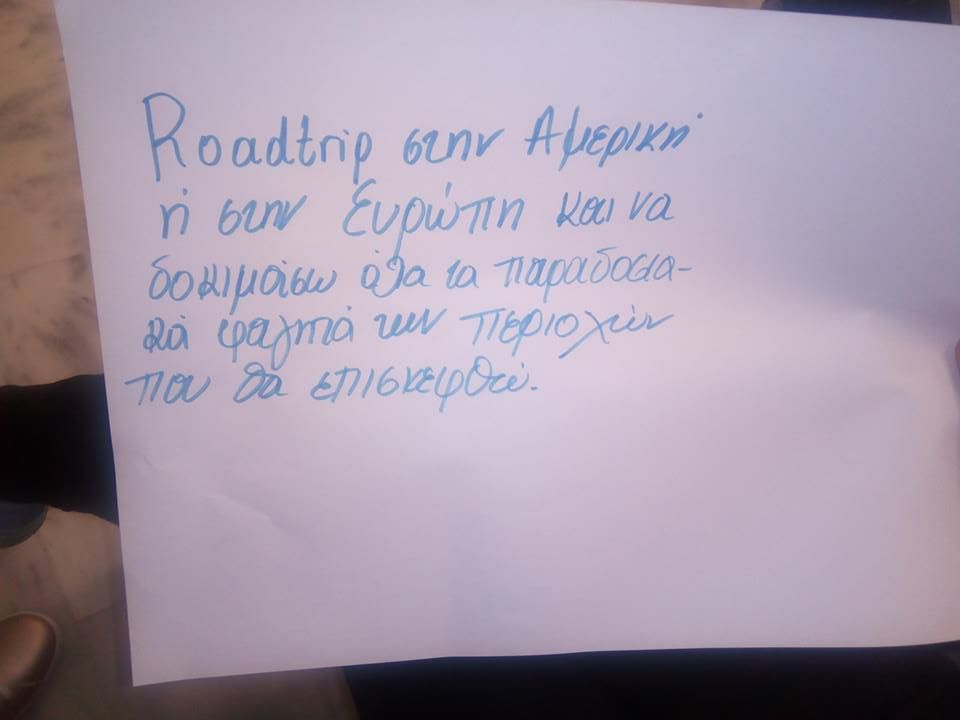 Roadtrip στην Αμερική
ή στην Ευρώπη και να
δοκιμάσω όλα τα παραδοσια-
κά φαγητά των περιοχών
που θα επισκεφθώ.